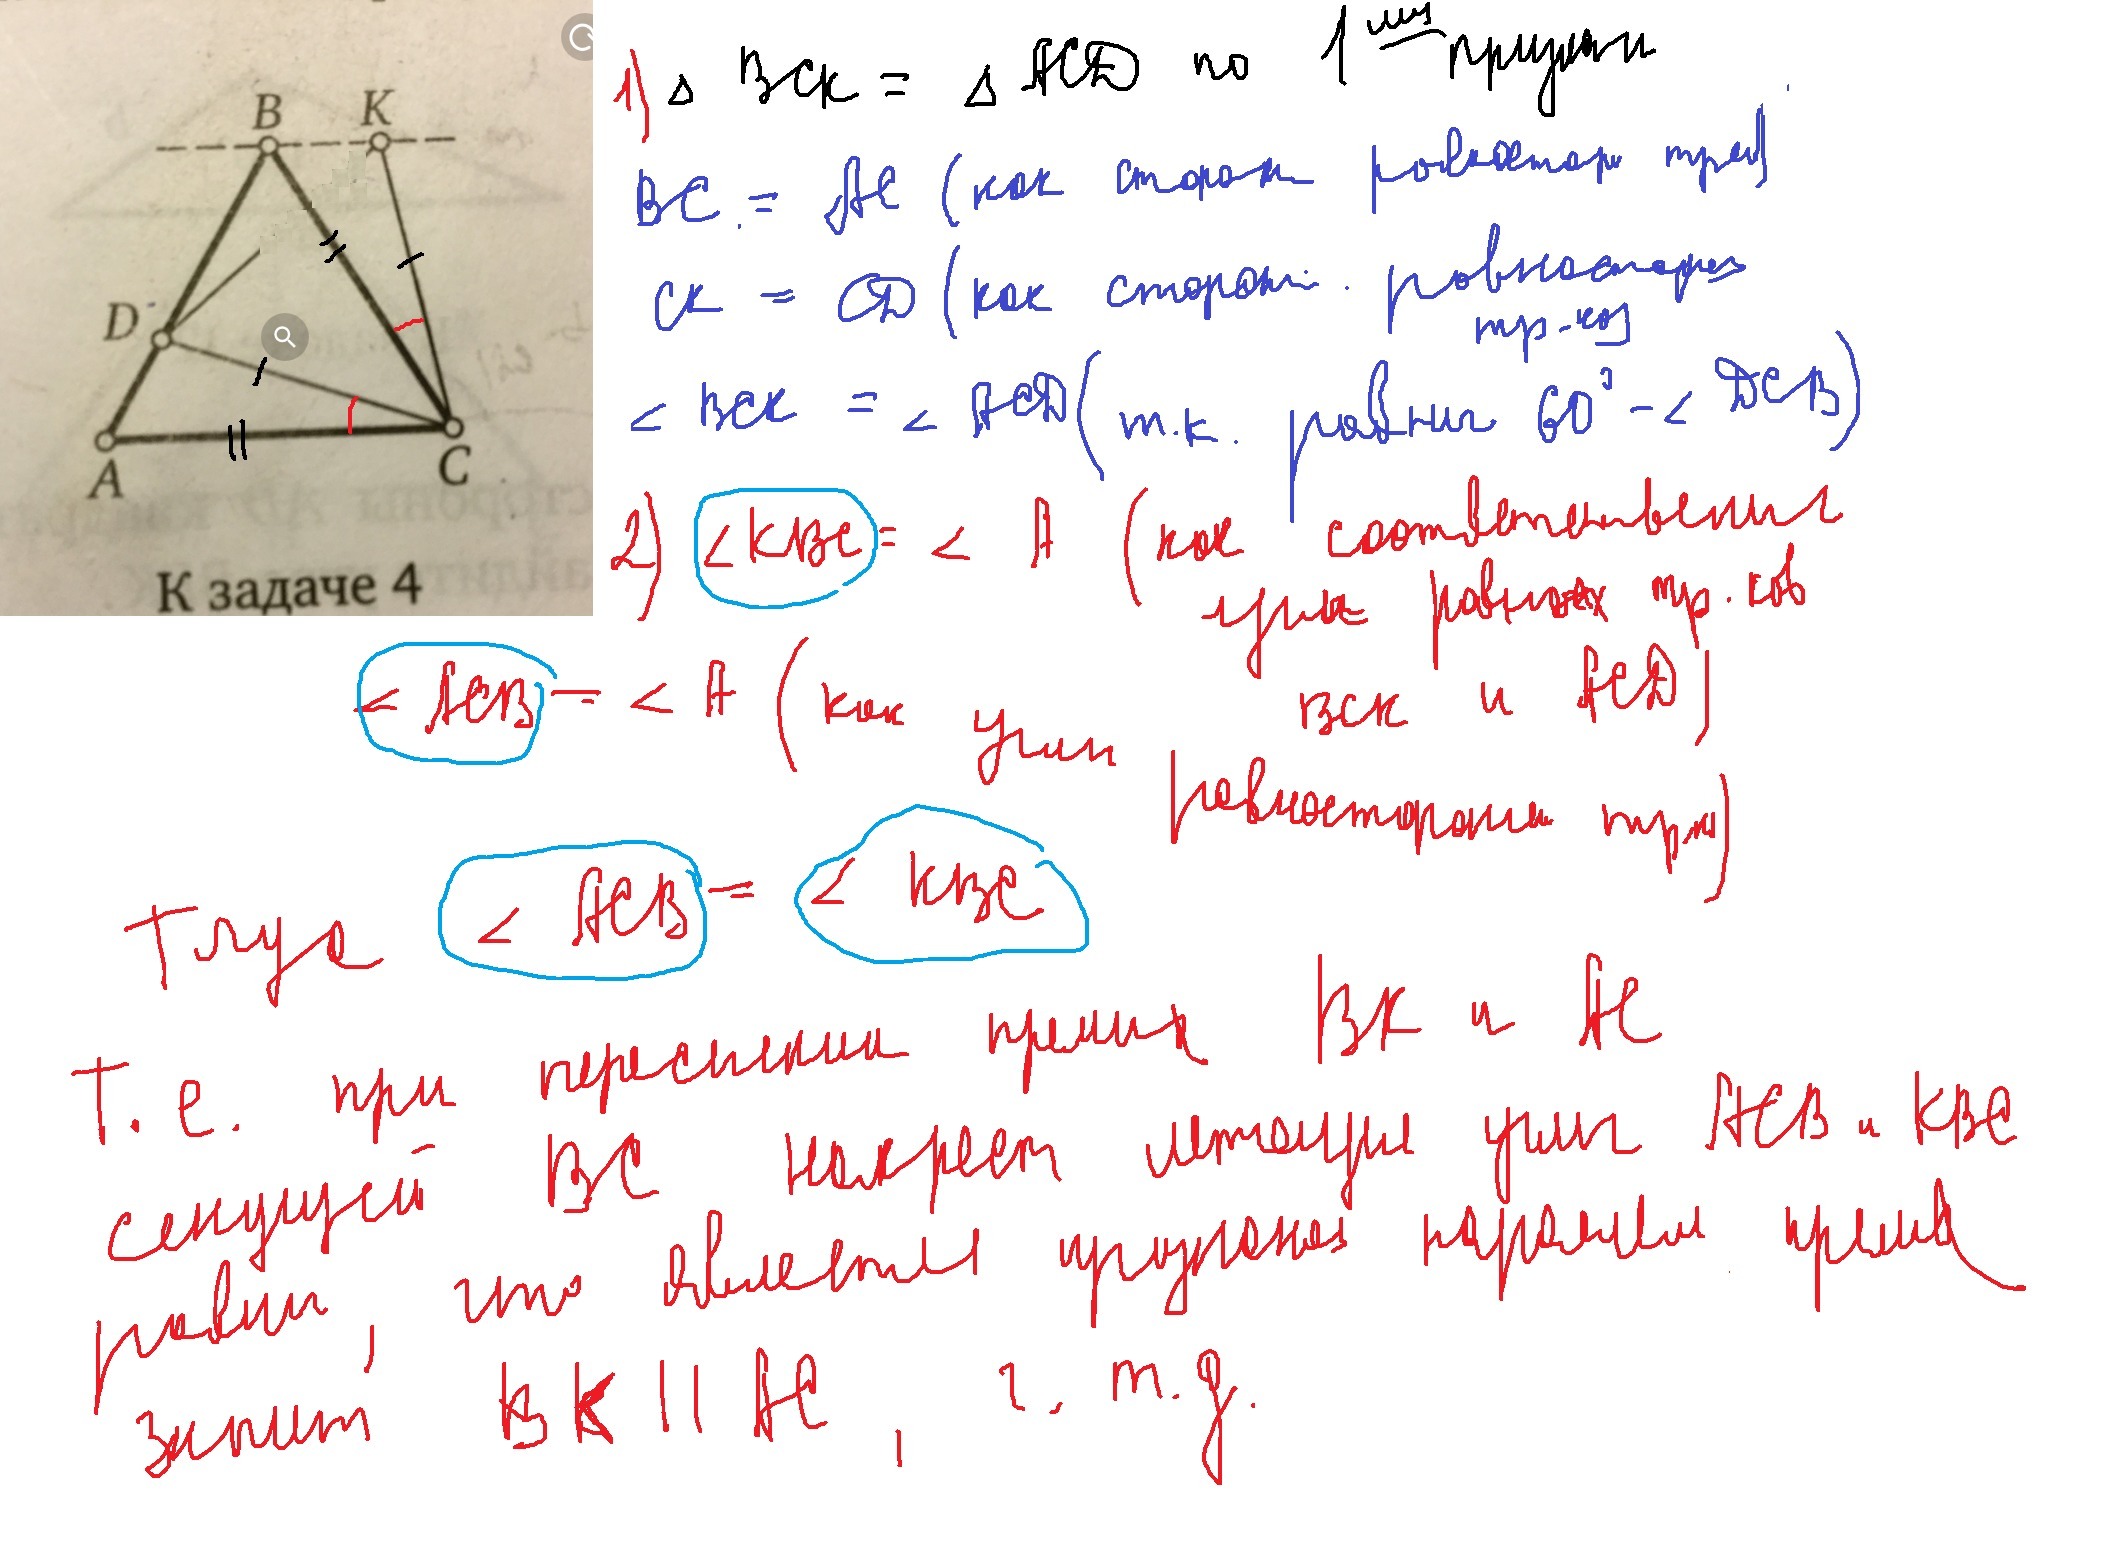 B K
D
A C
К задаче 4
1) Δ BCK = Δ ACD по 1
BC = AC (как сторон равностор
CK = CD (как сторон равносторон
тр-ков)
< BCK = < ACD (т.к. равны 60° - < DCB)
2) < KBC = < A (как соответственные
углы равных тр.ков
BCK и ACD)
< ACB = < A (как углы
равносторон
< ACB = < KBC
Т.е. при пересечении прямых BK и AC
секущей BC накрест лежащие углы ACB и KBC
равны, что является признаком параллел прямых
значит BK || AC, ч. т. д.